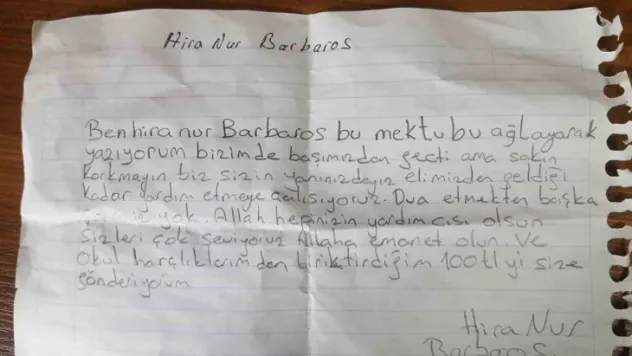 Hira Nur Barbaros
Ben hira nur Barbaros bu mektubu ağlayarak
yazıyorum bizimde başımızdan geçti ama sakın
korkmayın biz sizin yanınızdayız elimizden geldiği
kadar yardım etmeye çalışıyoruz. Dua etmekten başka
yok. Allah hepinizin yardımcısı olsun
sizleri çok seviyoruz Allaha emanet olun. ve
okul harçlıklarımdan biriktirdiğim 100tl yi size
gönderiyorum
Hira Nur
Barbaros